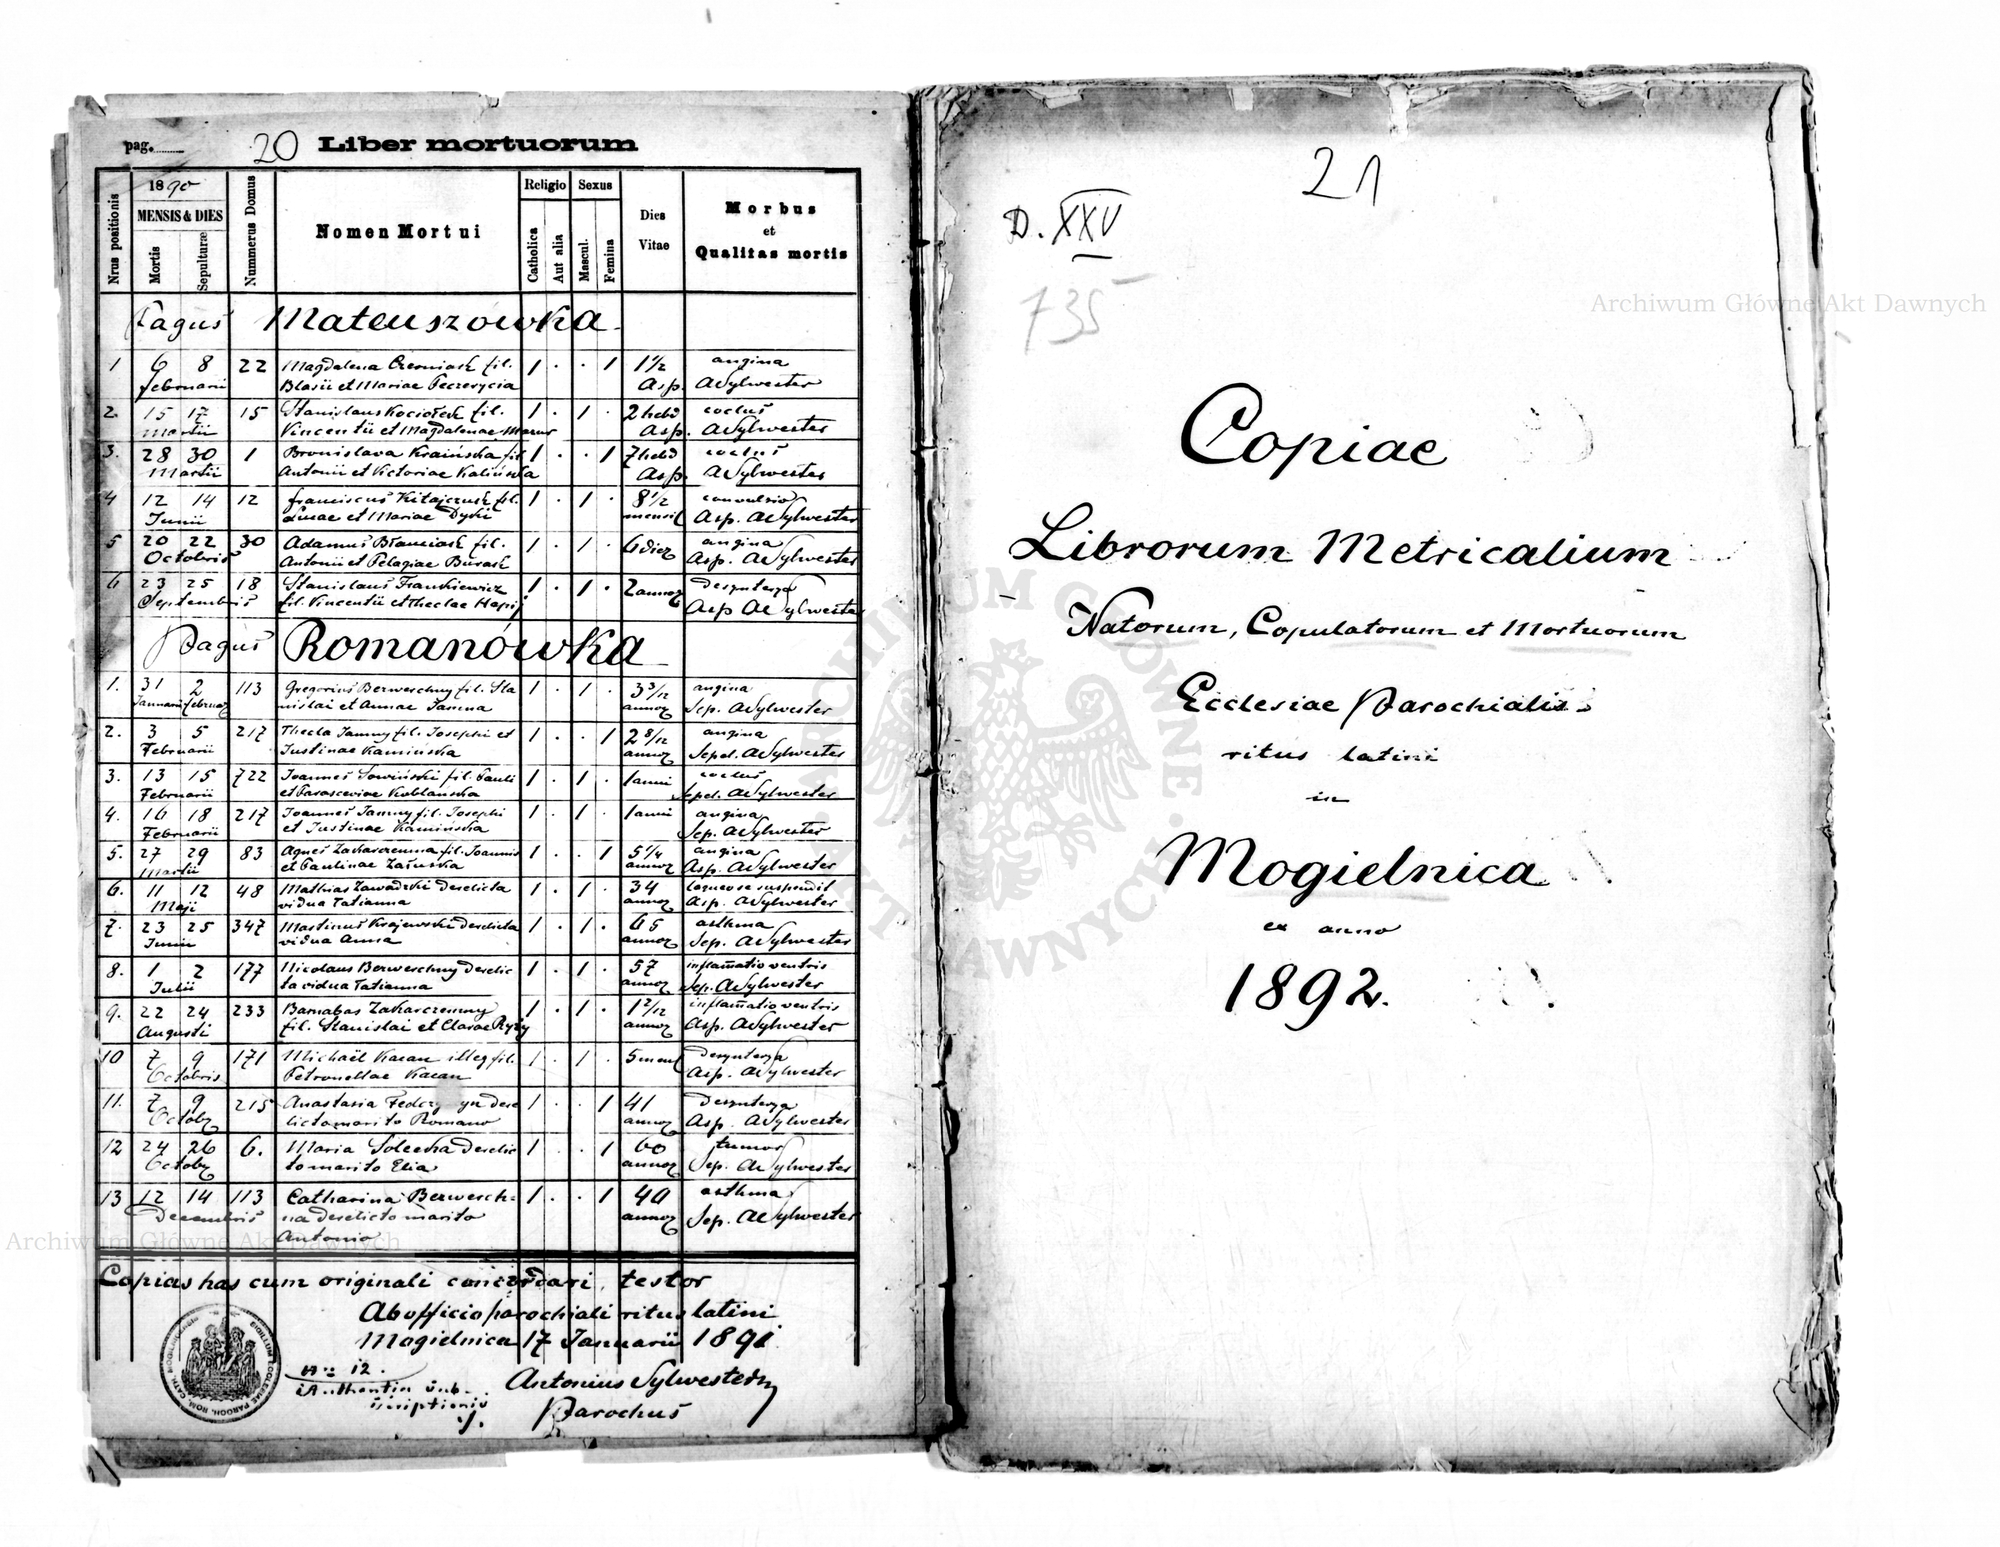 pag. 20 Liber mortuorum
Nrus positionis
1890
MENSIS & DIES
Mortis
Sepulturæ
Nummerus Domus
Nomen Mortui
Religio
Catholica
Aut alia
Sexus
Mascul.
Femina
Dies
Vitae
Morbus
et
Qualitas mortis
Pagus Mateuszówka
1 6 8 22 Magdalena Czerniak fil. 1 . . 1 1½ angina
Februarii Blasii et Mariae Peczerycia Asp. ASylwester
2. 15 17 15 Stanislaus Kociołek fil. 1 . 1 . 2 hebd coctus
Martii Vincentii et Magdalenae Mazur Asp. ASylwester
3. 28 30 1 Bronislava Kraińska fil 1 . . 1 7 hebd coctus
Martii Antonii et Victoriae Kalińska Asp. ASylwester
4 12 14 12 Franciscus Kitajczuk fil. 1 . 1 . 8½ convulsio
Junii Lucae et Mariae Dyki mensil Asp. ASylwester
5 20 22 30 Adamus Błauciak fil. 1 . 1 . 6 diez angina
Octobris Antonii et Pelagiae Burak Asp. ASylwester
6 23 25 18 Stanislaus Frankiewicz 1 . 1 . 2 annoz desynterya
Septembris fil. Vincentii et Theclae Hapij Asp ASylwester
Pagus Romanówka
1. 31 2 113 Gregorius Berweschny fil. Sta 1 . 1 . 3 3/12 angina
Januarii Februaz nislai et Annae Jamna annoz Sep. ASylwester
2. 3 5 217 Thecla Jamny fil. Josephi et 1 . . 1 2 8/12 angina
Februarii Justinae Kamińska annoz Sepel. ASylwester
3. 13 15 722 Joannes Sowiński fil. Pauli 1 . 1 . 1 anni coctus
Februarii et Parasceviae Koblańska Sepel. ASylwester
4. 16 18 217 Joannes Jamny fil. Josephi 1 . 1 . 1 anni angina
Februarii et Justinae Kamińska Sep. ASylwester
5. 27 29 83 Agnes Zacharczemna fil. Joannis 1 . . 1 5¼ angina
Martii et Paulinae Załuska annoz Asp. ASylwester
6. 11 12 48 Mathias Zawadzki derelicta 1 . 1 . 34 laqueo se suspendit
Maji vidua Tatianna annoz Asp. ASylwester
7. 23 25 347 Martinus Krajewski derelicta 1 . 1 . 65 asthma
Junii vidua Anna annoz Sep. ASylwester
8. 1 2 177 Nicolaus Berweschny derelic 1 . 1 . 57 inflamatio ventris
Julii ta vidua Tatianna annoz Sep. ASylwester
9. 22 24 233 Barnabas Zacharczemny 1 . 1 . 1 2/12 inflamatio ventris
Augusti fil. Stanislai et Clarae Ryży annoz Asp. ASylwester
10 7 9 171 Michaël Kacan illeg fil. 1 . 1 . 5 mens desynterya
Octobris Petronellae Kacan Asp. ASylwester
11. 7 9 215 Anastasia dere 1 . . 1 41 desynterya
Octobz licto marito Romano annoz Asp. ASylwester
12 24 26 6. Maria Solecka derelic 1 . . 1 60 tumor
Octobz to marito Elia annoz Sep. ASylwester
13 12 14 113 Catharina Berwesch= 1 . . 1 40 asthma
Decembris na derelicto marito annoz Sep. ASylwester
Antonio
Copias has cum originali concordari, testor
Ab officio parochiali ritus latini
Mogielnica 17 Januarii 1891.
Nr 12. Antonius Sylwester
Parochus
D. XXV
21
735
Copiae
Librorum Metricalium
Natorum, Copulatorum et Mortuorum
Ecclesiae Parochialis
ritus latini
in
Mogielnica
ex anno
1892.
Archiwum Główne Akt Dawnych
Archiwum Główne Akt Dawnych
ARCHIWUM GŁÓWNE AKT DAWNYCH